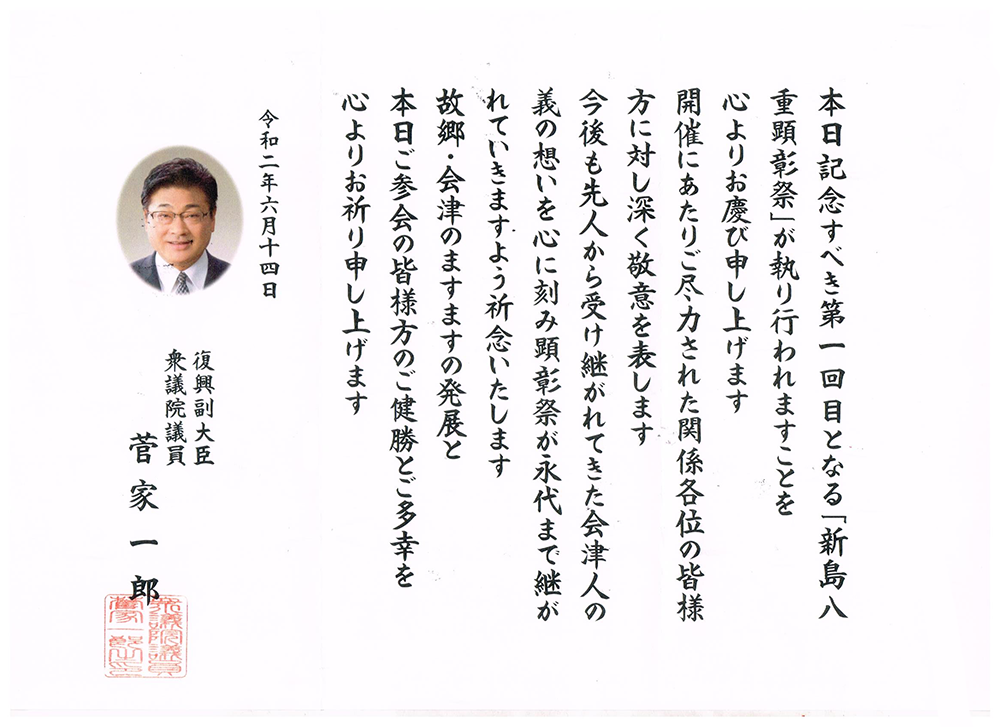 本日記念すべき第一回目となる「新島八
重顕彰祭」が執り行われますことを
心よりお慶び申し上げます
開催にあたりご尽力された関係各位の皆様
方に対し深く敬意を表します
今後も先人から受け継がれてきた会津人の
義の想いを心に刻み顕彰祭が永代まで継が
れていきますよう祈念いたします
故郷・会津のますますの発展と
本日ご参会の皆様方のご健勝とご多幸を
心よりお祈り申し上げます
令和二年六月十四日
復興副大臣
衆議院議員
菅家一郎
衆議院議員
菅家一郎之印